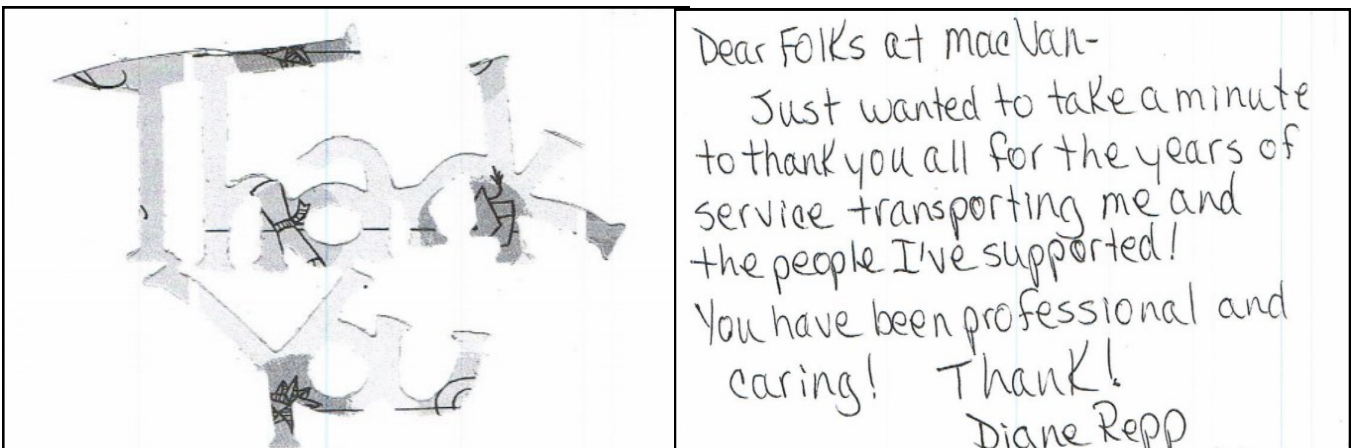 Thank
You
Dear Folks at mac Van-
Just wanted to take a minute
to thank you all for the years of
service transporting me and
the people I've supported!
You have been professional and
caring! Thank!
Diane Repp